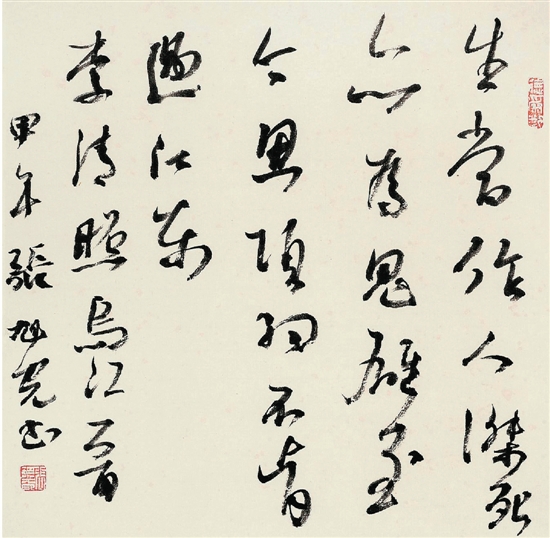 生當作人傑死
亦為鬼雄至
今思項羽不肯
過江東
李清照烏江一首
甲午張旭光書